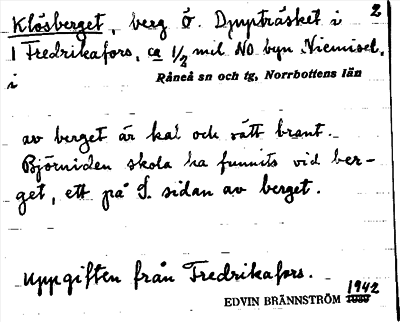 2
Klösberget, berg Ö. Djupträsket i
1 Fredrikafors, ca 1/2 mil NO byn Niemisel,
i Råneå sn och tg, Norrbottens län
av berget är kal och rätt brant.
Björniden skola ha funnits vid ber-
get, ett på S. sidan av berget.
Uppgiften från Fredrikafors.
1942
EDVIN BRÄNNSTRÖM